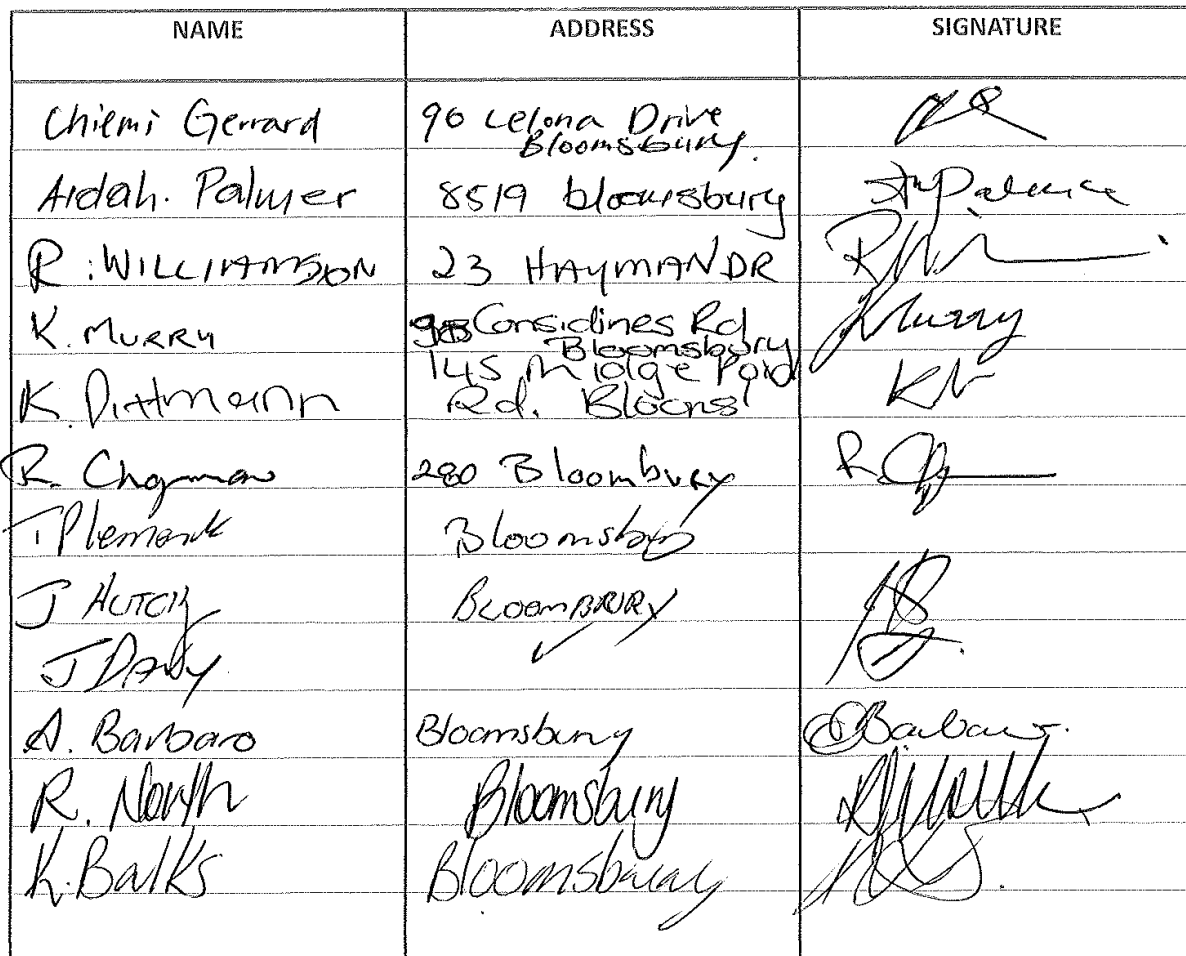 NAME ADDRESS SIGNATURE
Chiemi Gerrard 90 Lelona Drive
Bloomsbury.
Aidah. Palmer 8519 bloomsbury Palmer
R. WILLIAMSON 23 HAYMAN DR
K. MURRY Considines Rd KMurry
Bloomsbury
145 Midge Point
K. Dittmann Rd. Blooms
R. Chapman 280 Bloombury R.
Bloomsbury
J HUTCH BLOOMBRURY
J DAVY ✓
A. Barbaro Bloomsbury Barbaro.
R. North Bloomsbury
K. Balks Bloomsbury